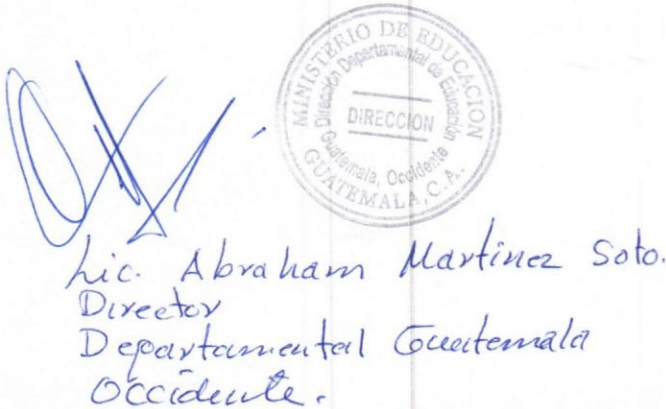 MINISTERIO DE EDUCACION
Dirección Departamental de Educación
DIRECCION
Guatemala, Occidente
GUATEMALA, C. A.
Lic. Abraham Martínez Soto.
Director
Departamental Guatemala
Occidente.